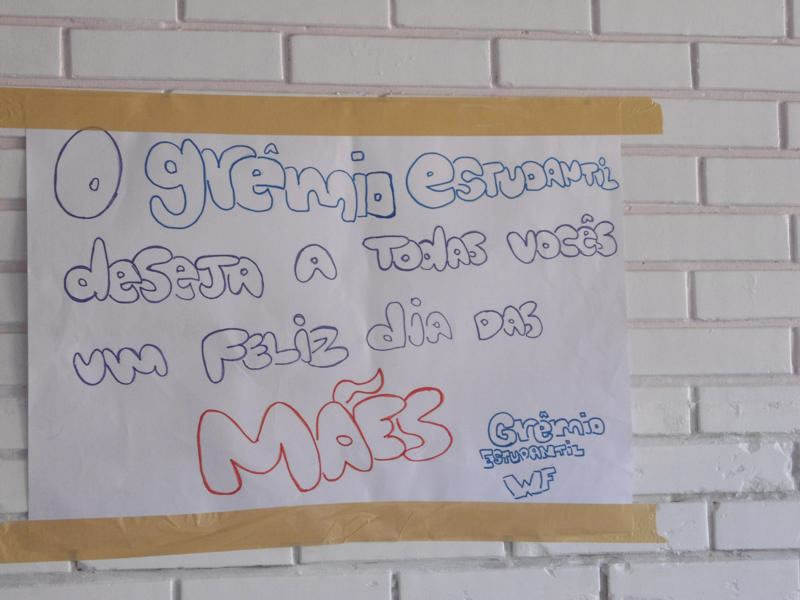 O grêmio ESTUDANTiL
deSeJA A TOdAS VOCÊS
UM FELiZ diA DAS
MÃES
Grêmio
ESTUDANTiL
WF